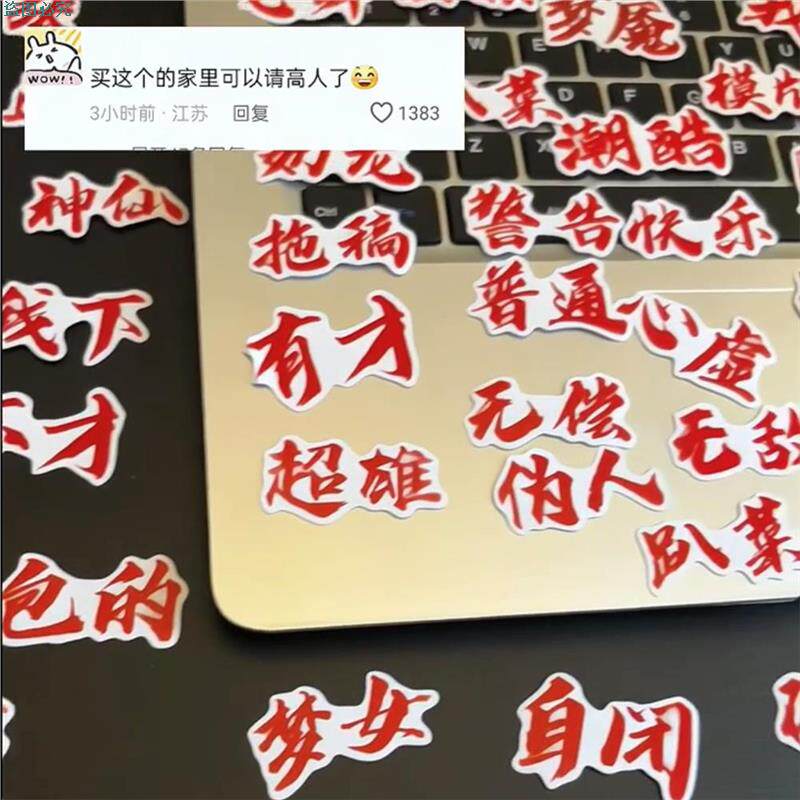 盗图必究
WOW!!
买这个的家里可以请高人了😄
3小时前·江苏 回复 1383
梦魇
菜
模片
潮酷
神仙
拖稿
警告 快乐
普通 心虚
线下
有才
无偿 无敌
不才
超雄
伪人
趴菜
包的
梦女 自闭
D F
Y U
Z X
Ctrl